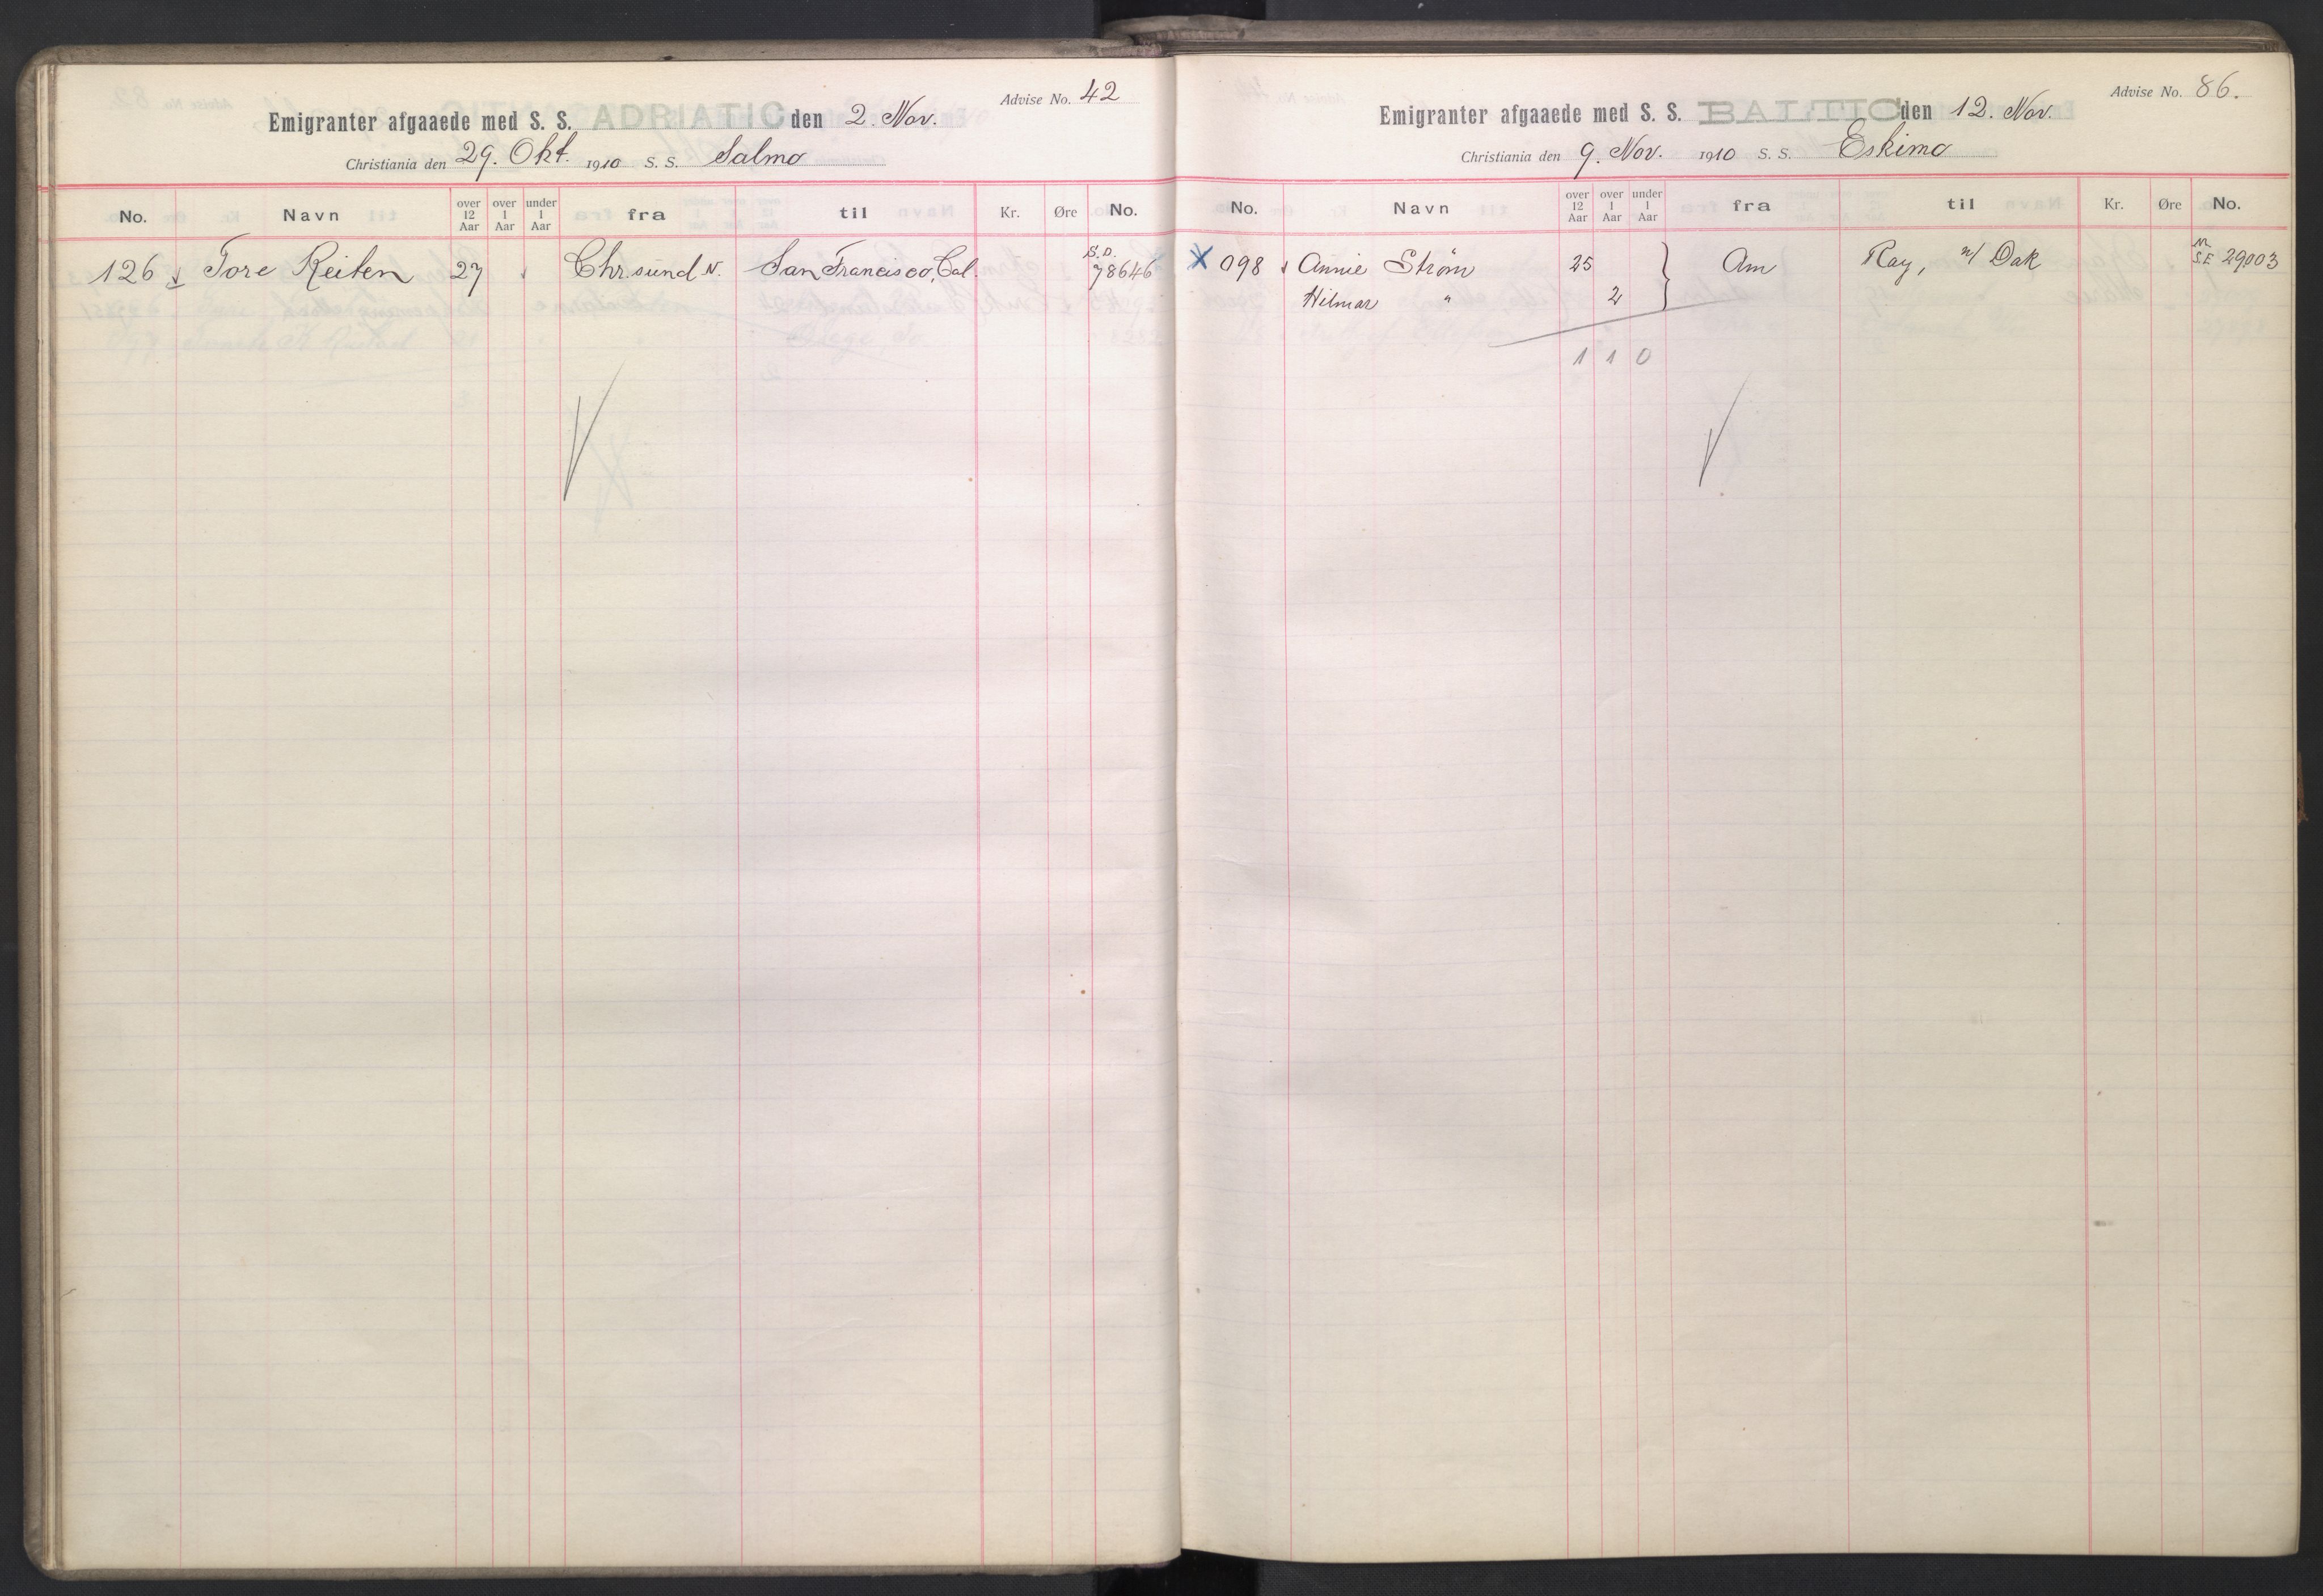 Advise No. 42
Emigranter afgaaede med S. S. ADRIATIC den 2. Nov.
Christiania den 29. Okt. 1910 S. S. Salmo
No. Navn over 12 Aar over 1 Aar under 1 Aar fra til Kr. Øre No.
126 Tore Reiten 27 Chr.sund N. San Francisco, Cal. S.D. 78646
Advise No. 86.
Emigranter afgaaede med S. S. BALTIC den 12. Nov.
Christiania den 9. Nov. 1910 S. S. Eskimo
No. Navn over 12 Aar over 1 Aar under 1 Aar fra til Kr. Øre No.
X 098 Annie Strøm 25 } Am Ray, n/ Dak S.E 29003
Hilmar " 2
1 1 0